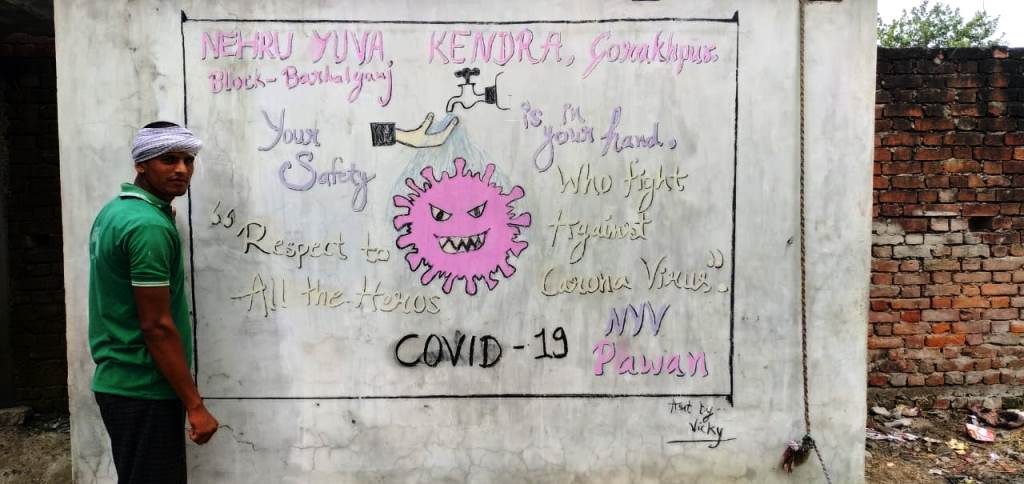 NEHRU YUVA, KENDRA, Gorakhpur.
Block-Barhalganj
Your Safety is in your hand.
"Respect to All the Heros Who fight Against Carona Virus".
COVID-19
NYV
Pawan
Art by
Vicky